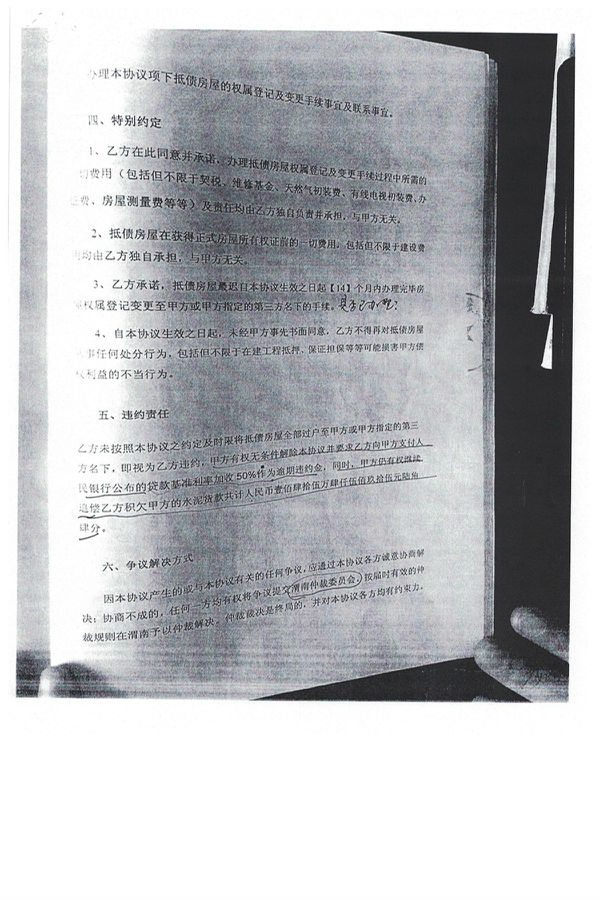 办理本协议项下抵债房屋的权属登记及变更手续事宜及联系事宜。
四、特别约定
1、乙方在此同意并承诺，办理抵债房屋权属登记及变更手续过程中所需的
切费用（包括但不限于契税、维修基金、天然气初装费、有线电视初装费、办
费、房屋测量费等等）及责任均由乙方独自负责并承担，与甲方无关。
2、抵债房屋在获得正式房屋所有权证前的一切费用，包括但不限于建设费
均由乙方独自承担，与甲方无关。
3、乙方承诺，抵债房屋最迟自本协议生效之日起【14】个月内办理完毕房
权属登记变更至甲方或甲方指定的第三方名下的手续。
4、自本协议生效之日起，未经甲方事先书面同意，乙方不得再对抵债房屋
事任何处分行为，包括但不限于在建工程抵押、保证担保等等可能损害甲方债
权利益的不当行为。
五、违约责任
乙方未按照本协议之约定及时限将抵债房屋全部过户至甲方或甲方指定的第三
方名下，即视为乙方违约，甲方有权无条件解除本协议并要求乙方向甲方支付人
民银行公布的贷款基准利率加收50%作为逾期违约金，同时，甲方仍有权继续
追偿乙方积欠甲方的水泥货款共计人民币壹佰肆拾伍万肆仟伍佰玖拾伍元陆角
肆分。
六、争议解决方式
因本协议产生的或与本协议有关的任何争议，应通过本协议各方诚意协商解
决；协商不成的，任何一方均有权将争议提交渭南仲裁委员会，按届时有效的仲
裁规则在渭南予以仲裁解决。仲裁裁决是终局的，并对本协议各方均有约束力。